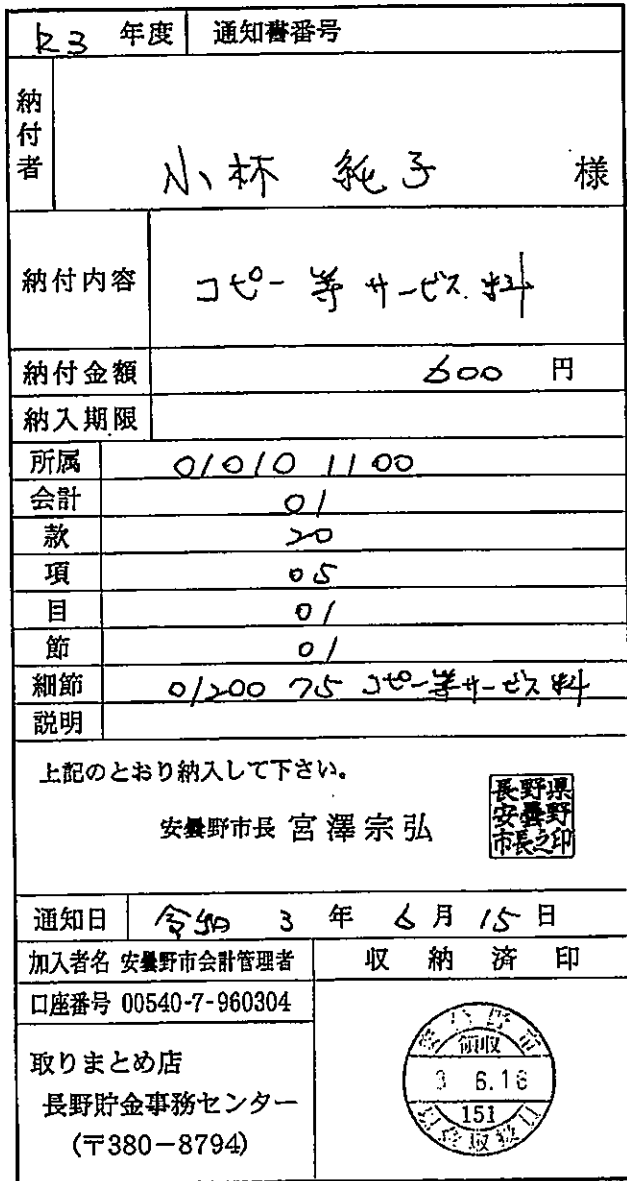 R3 年度 通知書番号
納付者 小林 純子 様
納付内容 コピー等サービス料
納付金額 600 円
納入期限
所属 01010 1100
会計 01
款 20
項 05
目 01
節 01
細節 01200 75 コピー等サービス料
説明
上記のとおり納入して下さい。
安曇野市長 宮澤宗弘
長野県
安曇野
市長之印
通知日 令和 3 年 6 月 15 日
加入者名 安曇野市会計管理者
収納済印
口座番号 00540-7-960304
取りまとめ店
長野貯金事務センター
(〒380-8794)
領収
3 6.16
151